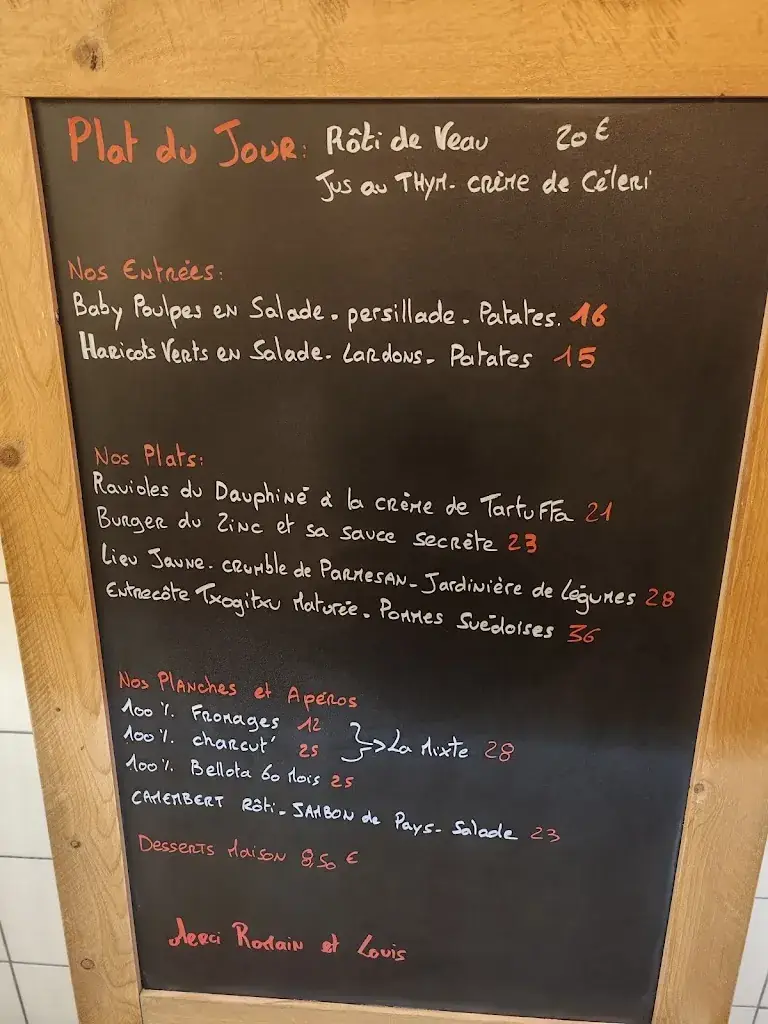 Plat du Jour: Rôti de Veau 20€
Jus au THYM- crème de Céleri
Nos Entrées:
Baby Poulpes en Salade. persillade. Patates. 16
Haricots Verts en Salade. Lardons. Patates 15
Nos Plats:
Ravioles du Dauphiné à la crème de Tartuffa 21
Burger du Zinc et sa sauce secrète 23
Lieu Jaune. crumble de PARMESAN- Jardinière de légumes 28
Entrecôte Txogitxu Maturée. Pommes Suédoises 36
Nos Planches et Apéros
100% Fromages 12
100% charcut' 25
}->La Mixte 28
100% Bellota 60 Mois 25
CAMEMBERT Rôti- JAMBON de Pays- Salade 23
Desserts Maison 8,50 €
Merci Romain et Louis